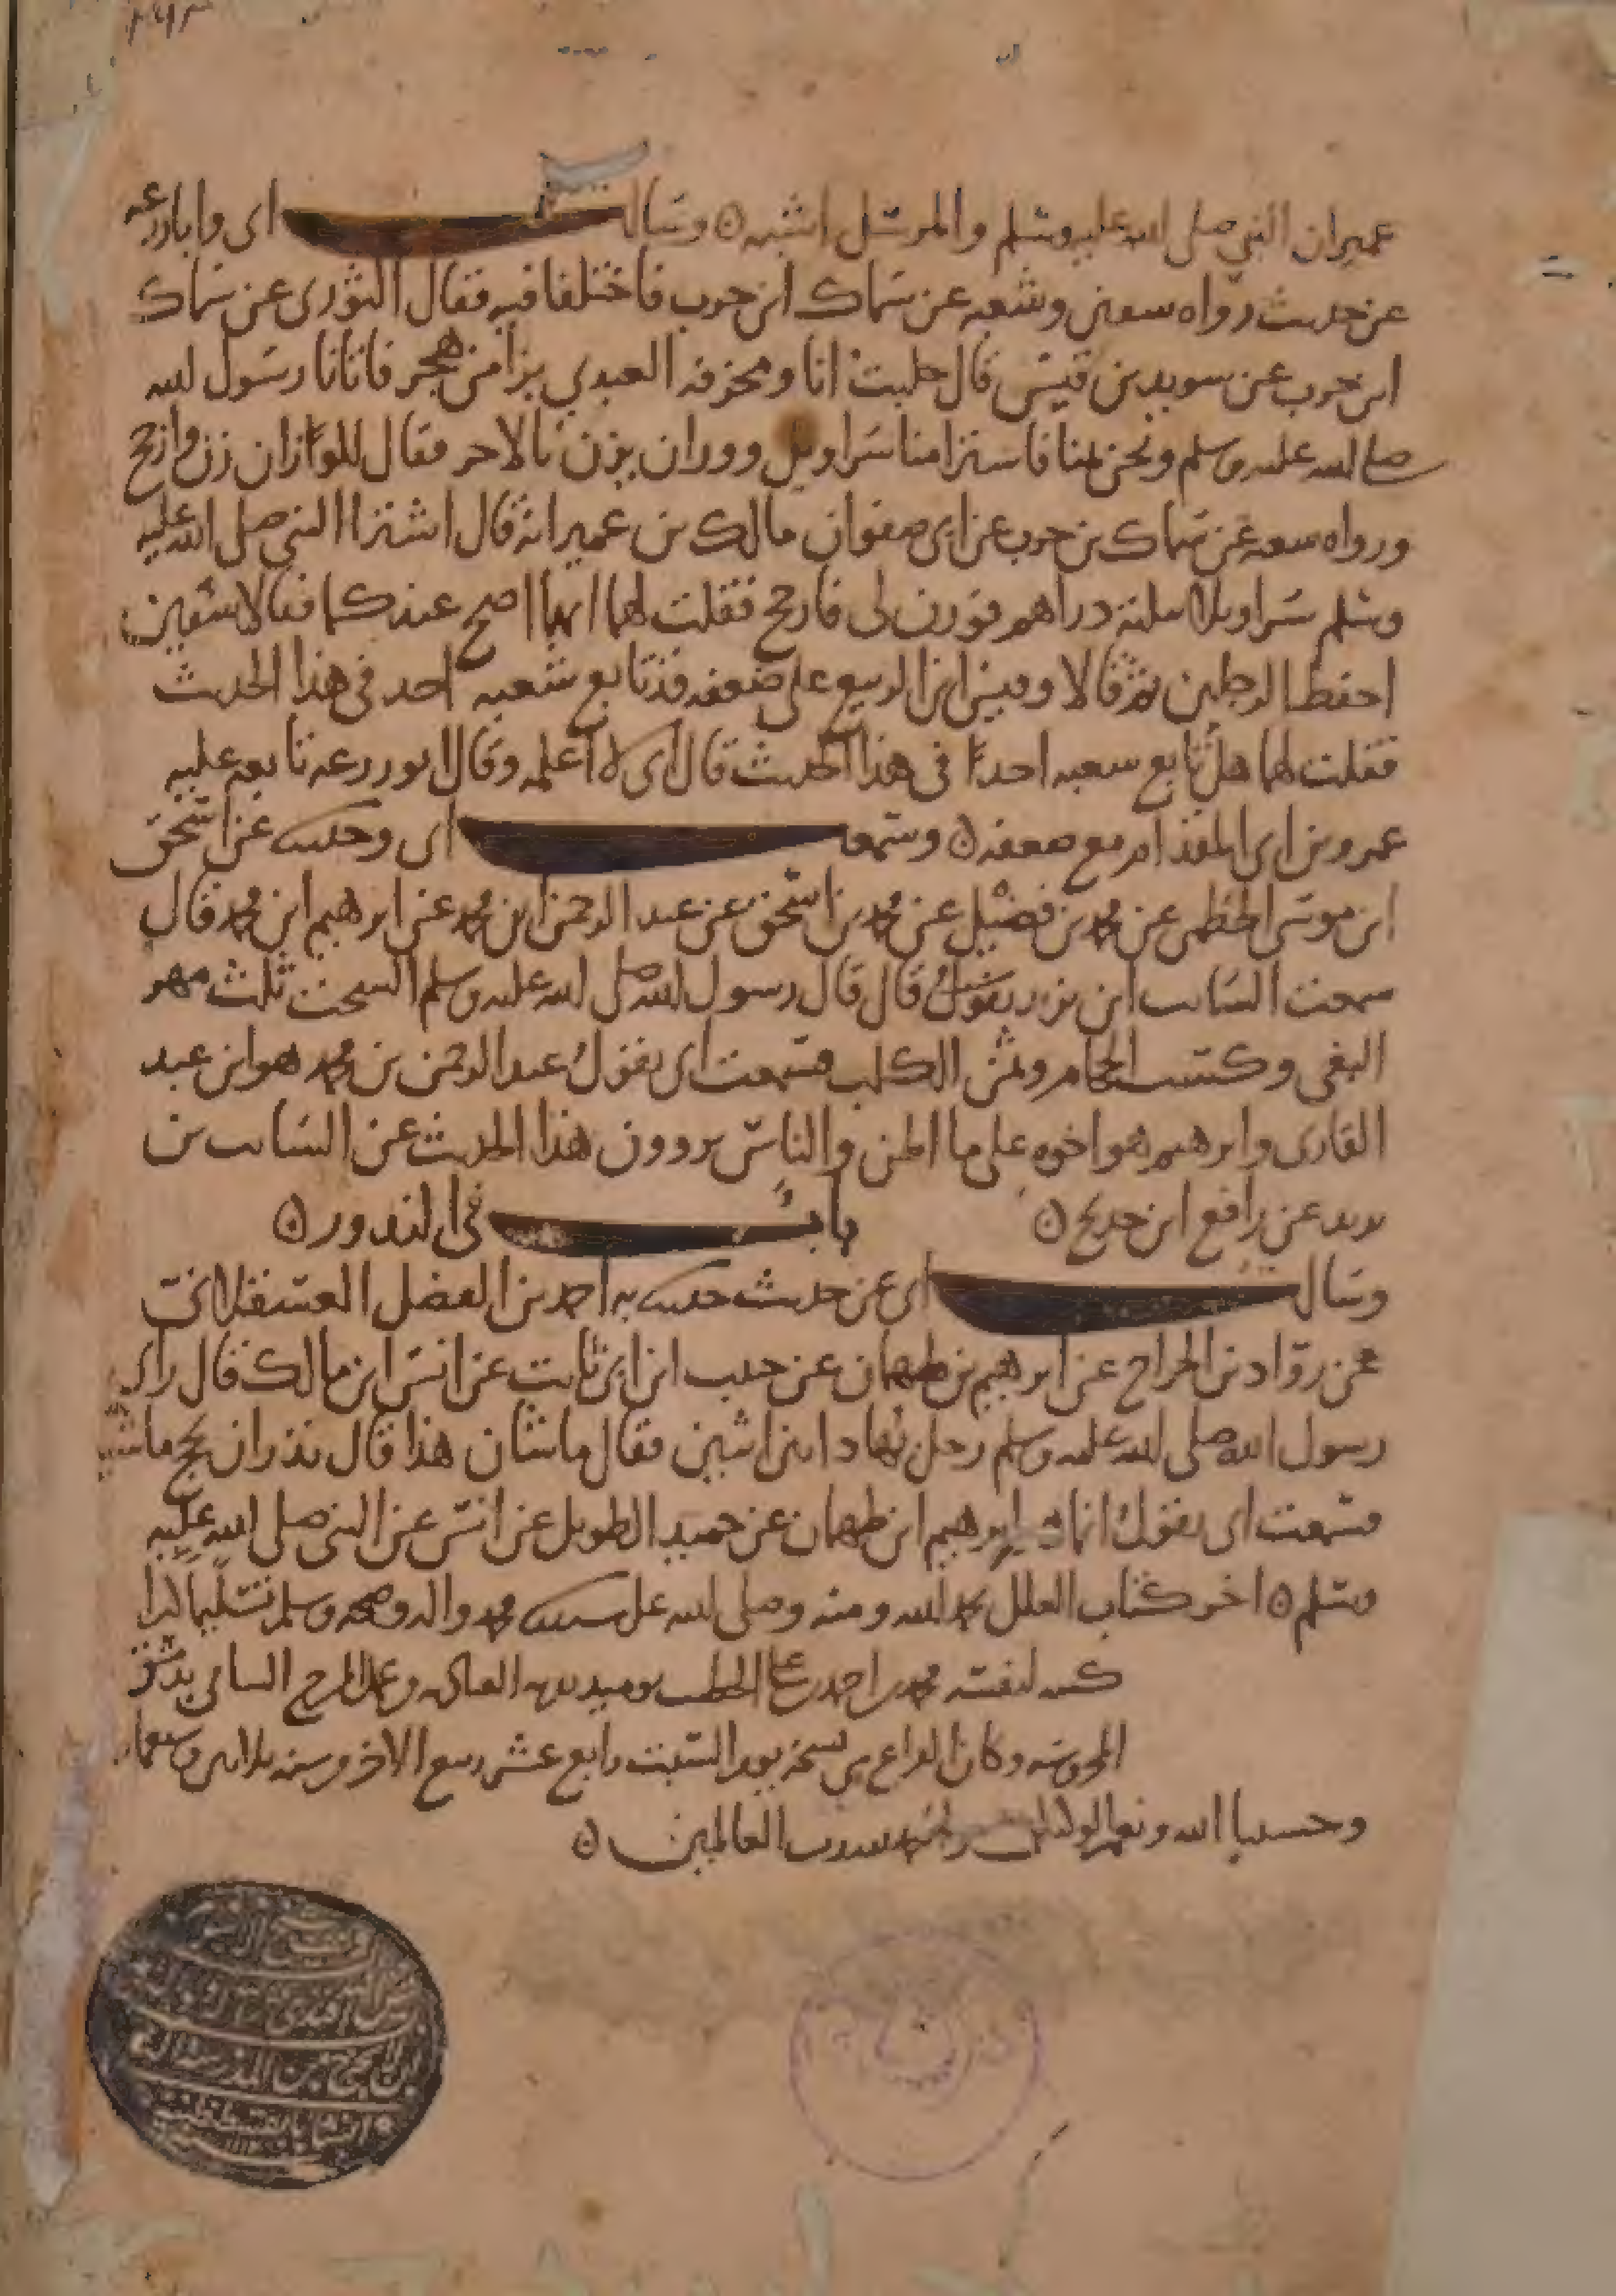 عمير ان النبي صلى الله عليه وسلم والمرسل اشبه ه وسالت ابي وابا زرعه
عن حديث رواه سفين وشعبه عن سماك ابن حرب فاختلفا فيه فقال الثوري عن سماك
ابن حرب عن سويد بن قيس قال جلبت انا ومخرفه العبدي بزا من هجر فاتانا رسول الله
صلى الله عليه وسلم ونحن بمنا فاشترا منا سراويل ووزان يزن بالاجر فقال للوازان زن وارجح
ورواه شعبه عن سماك بن حرب عن ابي صفوان مالك بن عميرانه قال اشترا النبي صلى الله عليه
وسلم سراويلا بثلثة دراهم فوزن لي فارجح فقلت لهما ايهما اصح عندكما فقالا سفين
احفظ الرجلين ثم قالا وقيس ابن الربيع على ضعفه قد تابع شعبه احد في هذا الحديث
فقلت لهما هل تابع شعبه احدا في هذا الحديث قال ابي لا اعلمه وقال ابو زرعه تابعه عليه
عمرو بن ابي المقدام مع ضعفه ه وسمعت ابي وحدثنا عن اسحق
ابن موسى الخطمي عن محمد بن فضيل عن محمد بن اسحق عن عبد الرحمن ابن محمد عن ابرهيم ابن محمد قال
سمعت السايب ابن يزيد يقول قال قال رسول الله صلى الله عليه وسلم السحت ثلث مهر
البغي وكسب الحجام وثمن الكلب فسمعت ابي يقول عبد الرحمن بن محمد هو ابن عبد
القاري وابرهيم هو اخوه على ما اظن والناس يروون هذا الحديث عن السايب بن
يزيد عن رافع ابن خديج ه باب في النذور ه
وسالت ابي عن حديث حدثنا به احمد بن الفضل العسقلاني
عن رواد بن الجراح عن ابرهيم بن طهمان عن حبيب ابن ابي ثابت عن انس ابن مالك قال راى
رسول الله صلى الله عليه وسلم رجل يهادا بين اثنين فقال ما شان هذا قال نذر ان يحج ماشيا
فسمعت ابي يقول انما هو ابرهيم ابن طهمان عن حميد الطويل عن انس عن النبي صلى الله عليه
وسلم ه اخر كتاب العلل بحمد الله ومنه وصلى الله على سيدنا محمد واله وصحبه وسلم تسليما كثيرا
كتبه لنفسه محمد بن احمد بن علي الخطيب يوميد الشامي بدمشق
المحروسه وكان الفراغ من نسخه يوم السبت رابع عشر ربيع الاخر سنه ثلاثين وسبعمائه
وحسبنا الله ونعم الوكيل والحمد لله رب العالمين ه